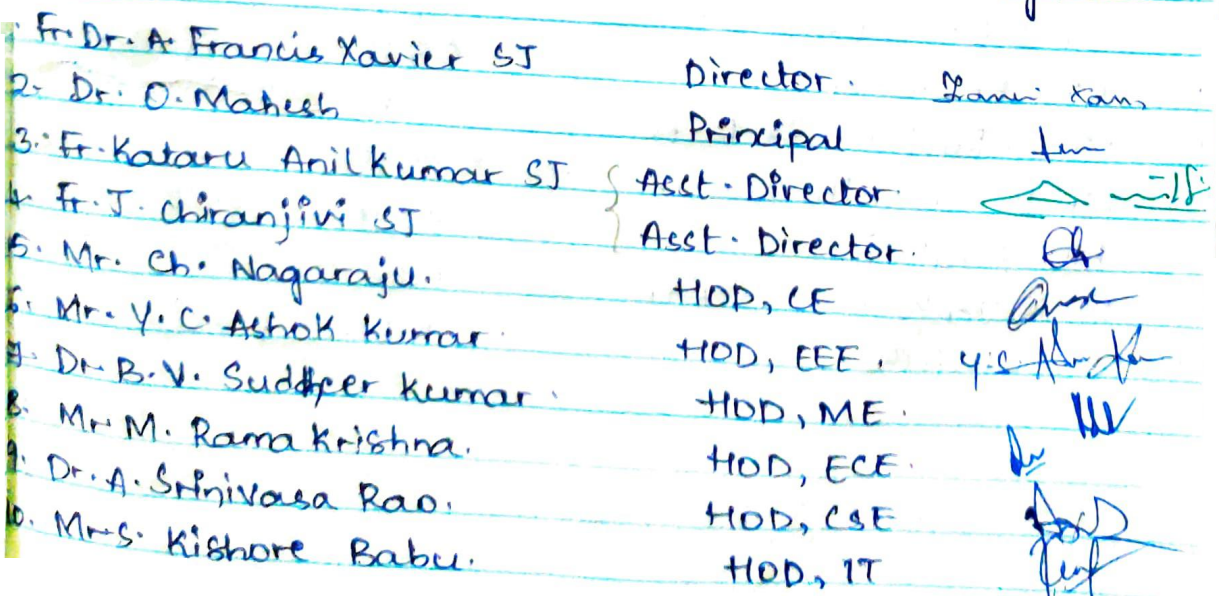 1. Fr. Dr. A. Francis Xavier SJ Director.
2. Dr. O. Mahesh Principal
3. Fr. Kataru Anil Kumar SJ Asst. Director.
4. Fr. J. Chiranjivi SJ Asst. Director.
5. Mr. Ch. Nagaraju. HOD, CE
6. Mr. Y. C. Ashok Kumar. HOD, EEE.
7. Dr. B. V. Sudheer Kumar. HOD, ME.
8. Mr. M. Rama Krishna. HOD, ECE.
9. Dr. A. Srinivasa Rao. HOD, CSE
10. Mr. S. Kishore Babu. HOD, IT